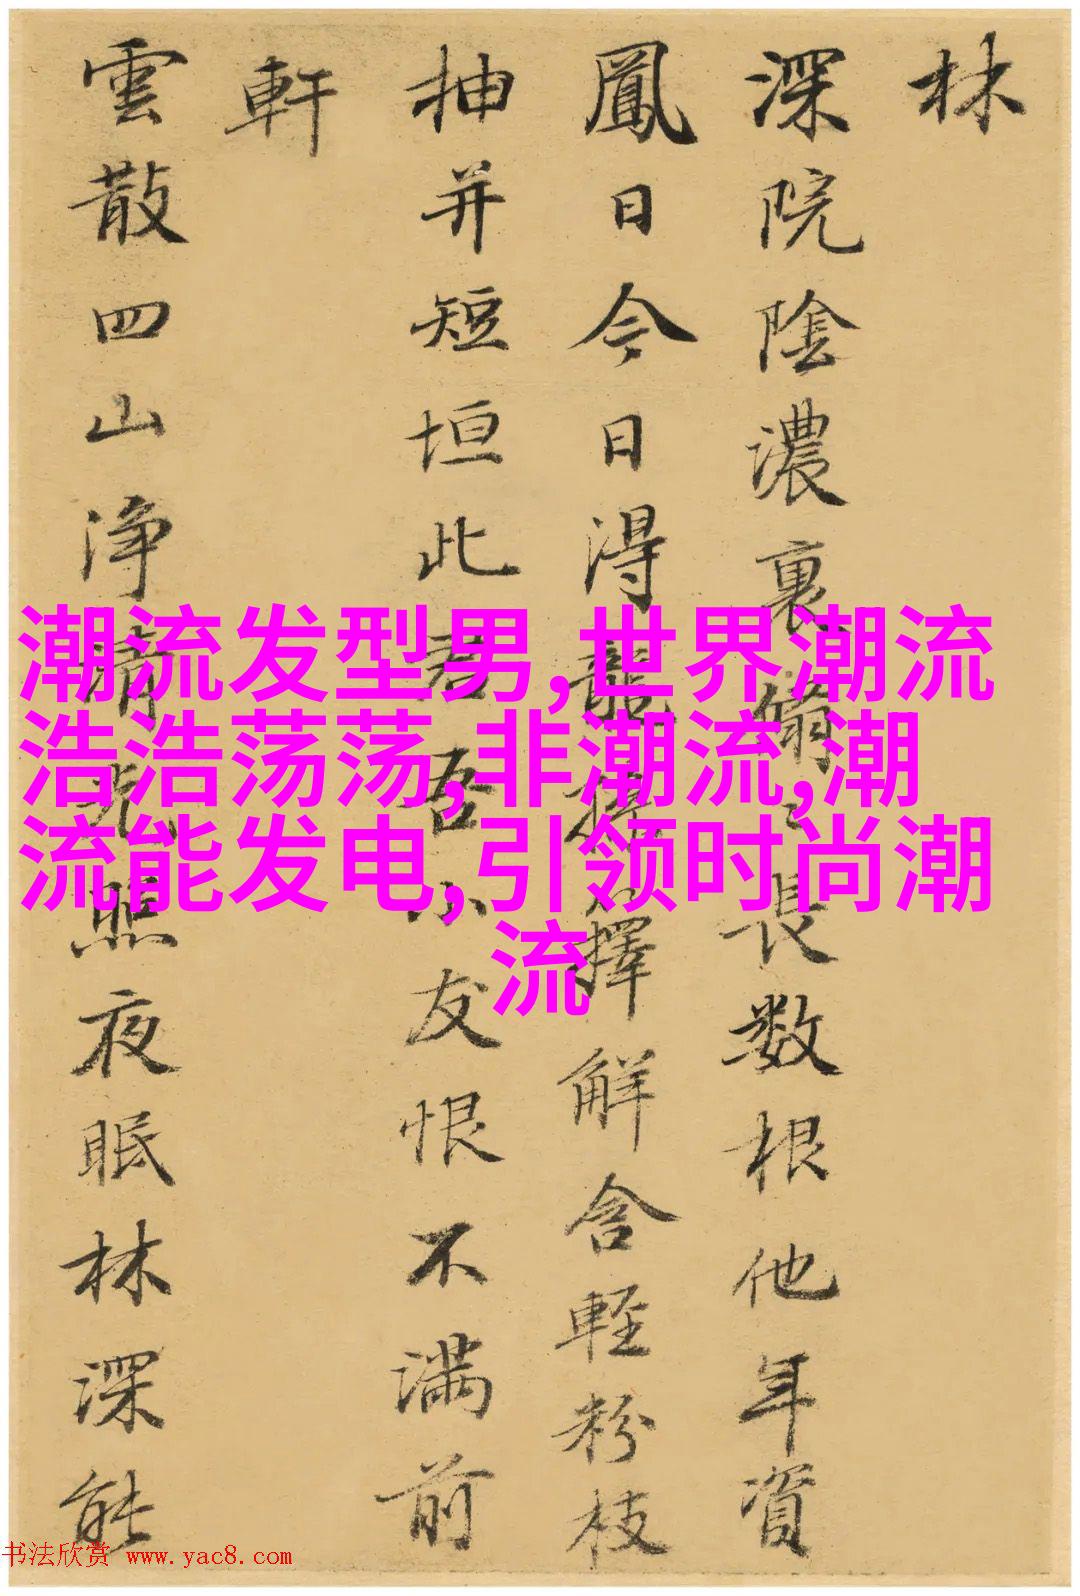 林
深院陰濃裏翛〻長数根他年資
鳳日今日得龍孫擇解含輕粉枝
抽并短垣此君吾小友恨不满前
軒
雲散四山净清光照夜眠林深能
潮流发型男,世界潮流
浩浩荡荡,非潮流,潮
流能发电,引领时尚潮
流
书法欣赏 www.yac8.com